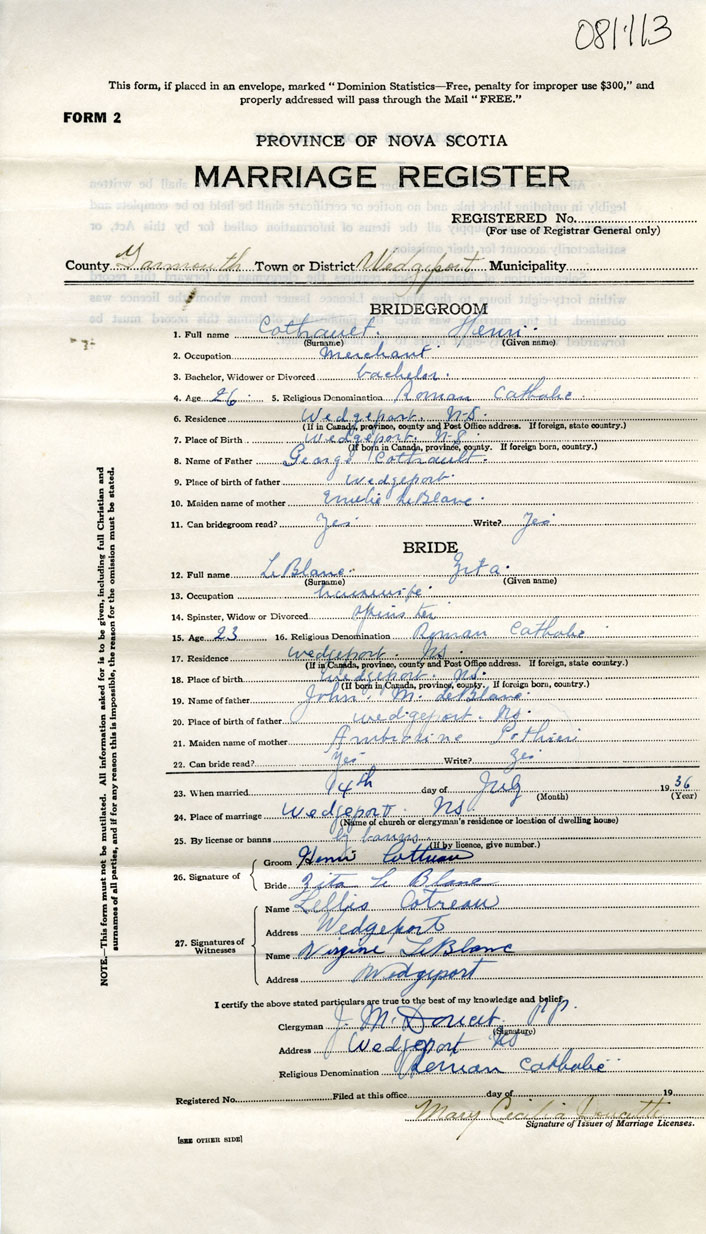 081113
This form, if placed in an envelope, marked "Dominion Statistics—Free, penalty for improper use $300," and
properly addressed will pass through the Mail "FREE."
FORM 2
PROVINCE OF NOVA SCOTIA
MARRIAGE REGISTER
REGISTERED No.
(For use of Registrar General only)
County Yarmouth Town or District Wedgeport Municipality
BRIDEGROOM
1. Full name Cothauet. Henri.
(Surname) (Given name)
2. Occupation Merchant
3. Bachelor, Widower or Divorced bachelor.
4. Age 26. 5. Religious Denomination Roman Catholic.
6. Residence Wedgeport. N.S.
(If in Canada, province, county and Post Office address. If foreign, state country.)
7. Place of Birth Wedgeport. N.S.
(If born in Canada, province, county. If foreign born, country.)
8. Name of Father George Cothault.
9. Place of birth of father Wedgeport.
10. Maiden name of mother Emelie LeBlanc.
11. Can bridegroom read? Yes Write? Yes
BRIDE
12. Full name LeBlanc Zita.
(Surname) (Given name)
13. Occupation housewife
14. Spinster, Widow or Divorced spinster
15. Age 23 16. Religious Denomination Roman Catholic
17. Residence Wedgeport. N.S.
(If in Canada, province, county and Post Office address. If foreign, state country.)
18. Place of birth Wedgeport. N.S.
(If born in Canada, province, county. If foreign born, country.)
19. Name of father John M. LeBlanc.
20. Place of birth of father Wedgeport. N.S.
21. Maiden name of mother Ambrosine Pothier
22. Can bride read? Yes Write? Yes
23. When married 14th day of July 1936
(Month) (Year)
24. Place of marriage Wedgeport N.S.
(Name of church or clergyman's residence or location of dwelling house)
25. By license or banns by banns.
(If by licence, give number.)
26. Signature of
Groom Henri Cottreau
Bride Zita Le Blanc
27. Signatures of Witnesses
Name Leslis Cotreau
Address Wedgeport
Name Virginie LeBlanc
Address Wedgeport
I certify the above stated particulars are true to the best of my knowledge and belief.
Clergyman J. M. Doucet. p.p.
(Signature)
Address Wedgeport NS
Religious Denomination Roman Catholic
Registered No. Filed at this office day of 19
Mary Cecilia Doucette
Signature of Issuer of Marriage Licenses.
[SEE OTHER SIDE]
NOTE.—This form must not be mutilated. All information asked for is to be given, including full Christian and
surnames of all parties, and if for any reason this is impossible, the reason for the omission must be stated.